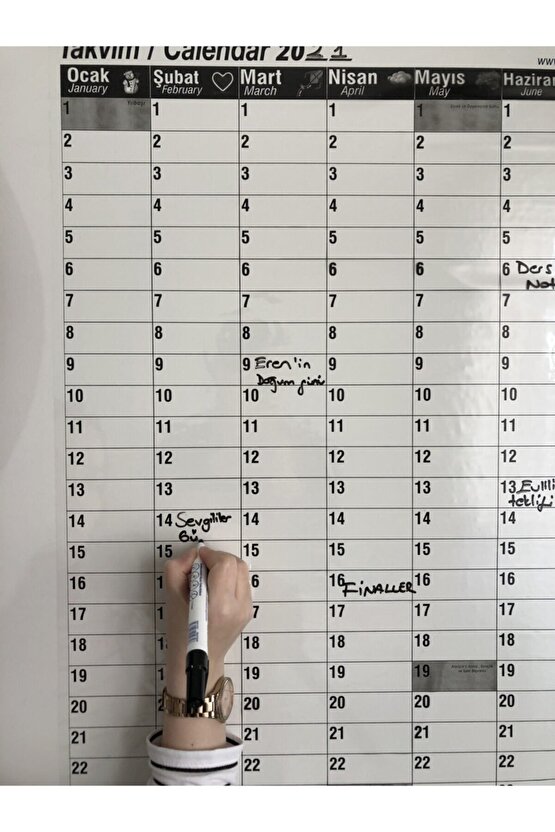 Takvim / Calendar 2021
Ocak Şubat Mart Nisan Mayıs Haziran
January February March April May June
1 1 1 1 1 1
2 2 2 2 2 2
3 3 3 3 3 3
4 4 4 4 4 4
5 5 5 5 5 5
6 6 6 6 6 6 Ders
Not
7 7 7 7 7 7
8 8 8 8 8 8
9 9 9 Eren'in 9 9 9
Doğum günü
10 10 10 10 10 10
11 11 11 11 11 11
12 12 12 12 12 12
13 13 13 13 13 13 Evlili
teklifi
14 14 Sevgililer 14 14 14 14
Gü
15 15 15 15 15 15
16 1 6 16 FİNALLER 16 16
17 17 17 17 17
18 1 18 18 18 18
19 1 19 19 19 19
20 2 20 20 20 20
21 21 21 21 21
22 22 22 22 22